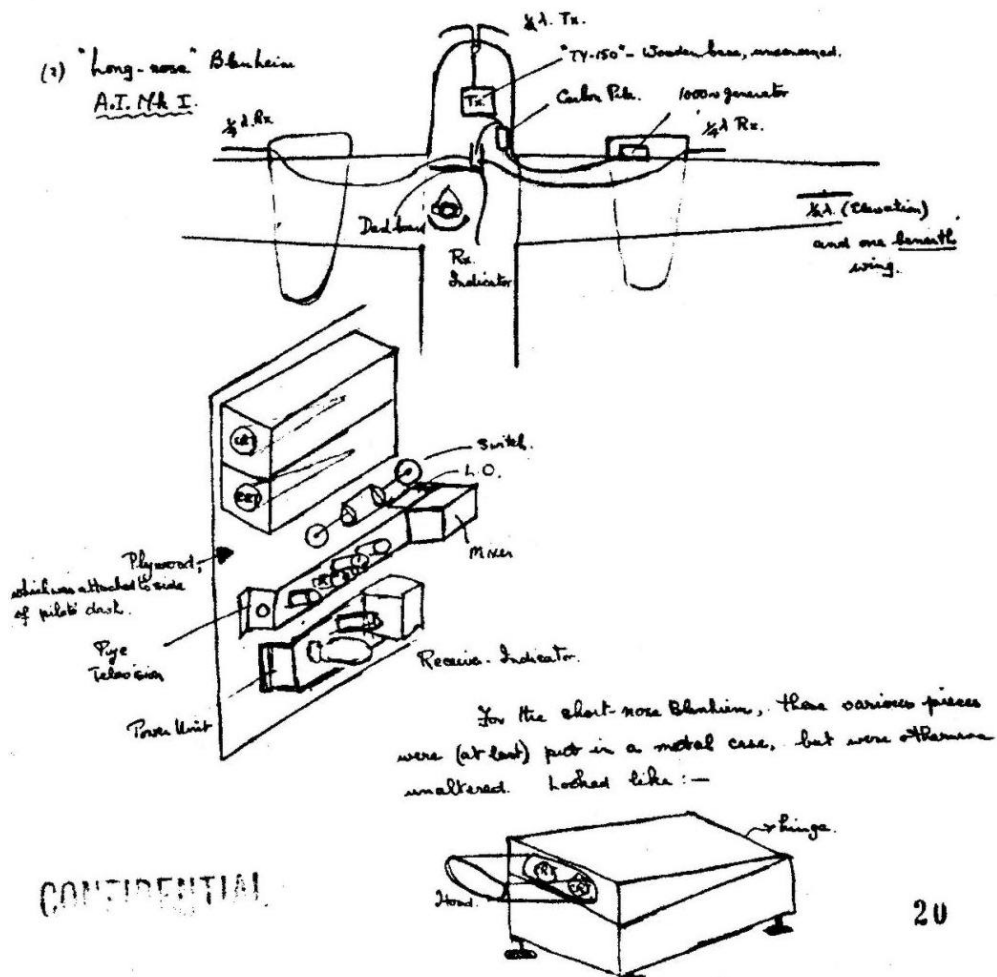 (2) "Long-nose" Blenheim
A.I. Mk I.
¼ λ. Tx.
"TY-150" - Wooden base, unscreened.
Tx.
Carbon Pile.
1000~ generator
¼ λ. Rx.
¼ λ Rx.
Dashboard
Rx.
Indicator
½ λ. (Elevation)
and one beneath
wing.
CRT
CRT
Switch.
L.O.
Mixer
Plywood,
which was attached to side
of pilots' dash.
Pye
Television
Power Unit
Receiver-Indicator.
For the short-nose Blenheim, these various pieces
were (at last) put in a metal case, but were otherwise
unaltered. Looked like :—
hinge.
Hood.
CONFIDENTIAL
20